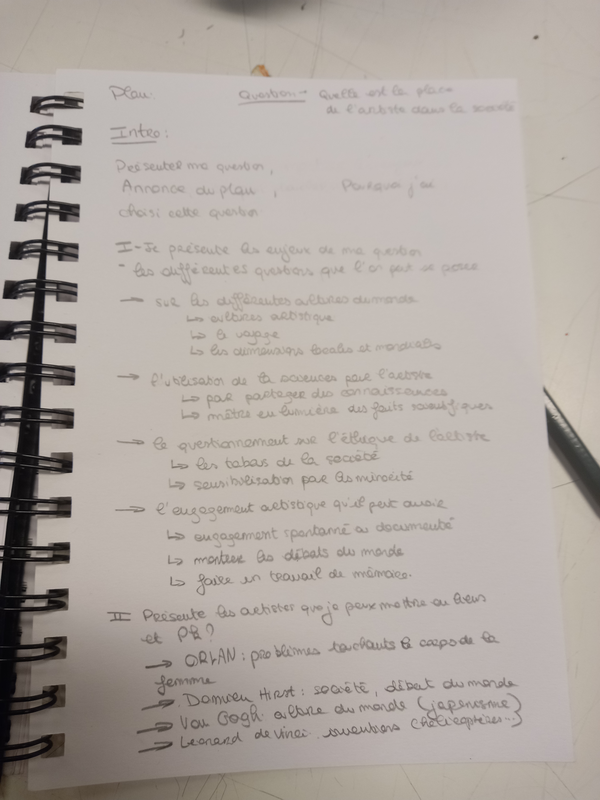 Plan: Question → Quelle est la place
de l'artiste dans la société
Intro:
Présenter ma question,
Annonce du plan, Pourquoi j'ai
choisi cette question.
I - Je présente les enjeux de ma question
- les différentes questions que l'on peut se poser
→ sur les différentes cultures du monde
↳ cultures artistique
↳ le voyage
↳ les dimensions locales et mondiales
→ l'utilisation de la sciences par l'artiste
↳ par partager des connaissances
↳ mêtre en lumière des faits scientifiques
→ le questionnement sur l'éthique de l'artiste
↳ les tabas de la société
↳ sensibilisation par les minorité
→ l'engagement artistique qu'il peut avoir
↳ engagement spontané ou documenté
↳ montrer les débats du monde
↳ faire un travail de mémoire.
II Présente les artistes que je peux mettre en liens
et PK?
→ ORLAN : problèmes touchants le corps de la
femme
→ Damien Hirst : société, débat du monde
→ Van Gogh culture du monde (japonisme)
→ Leonard de vinci inventions (hélicoptères...)